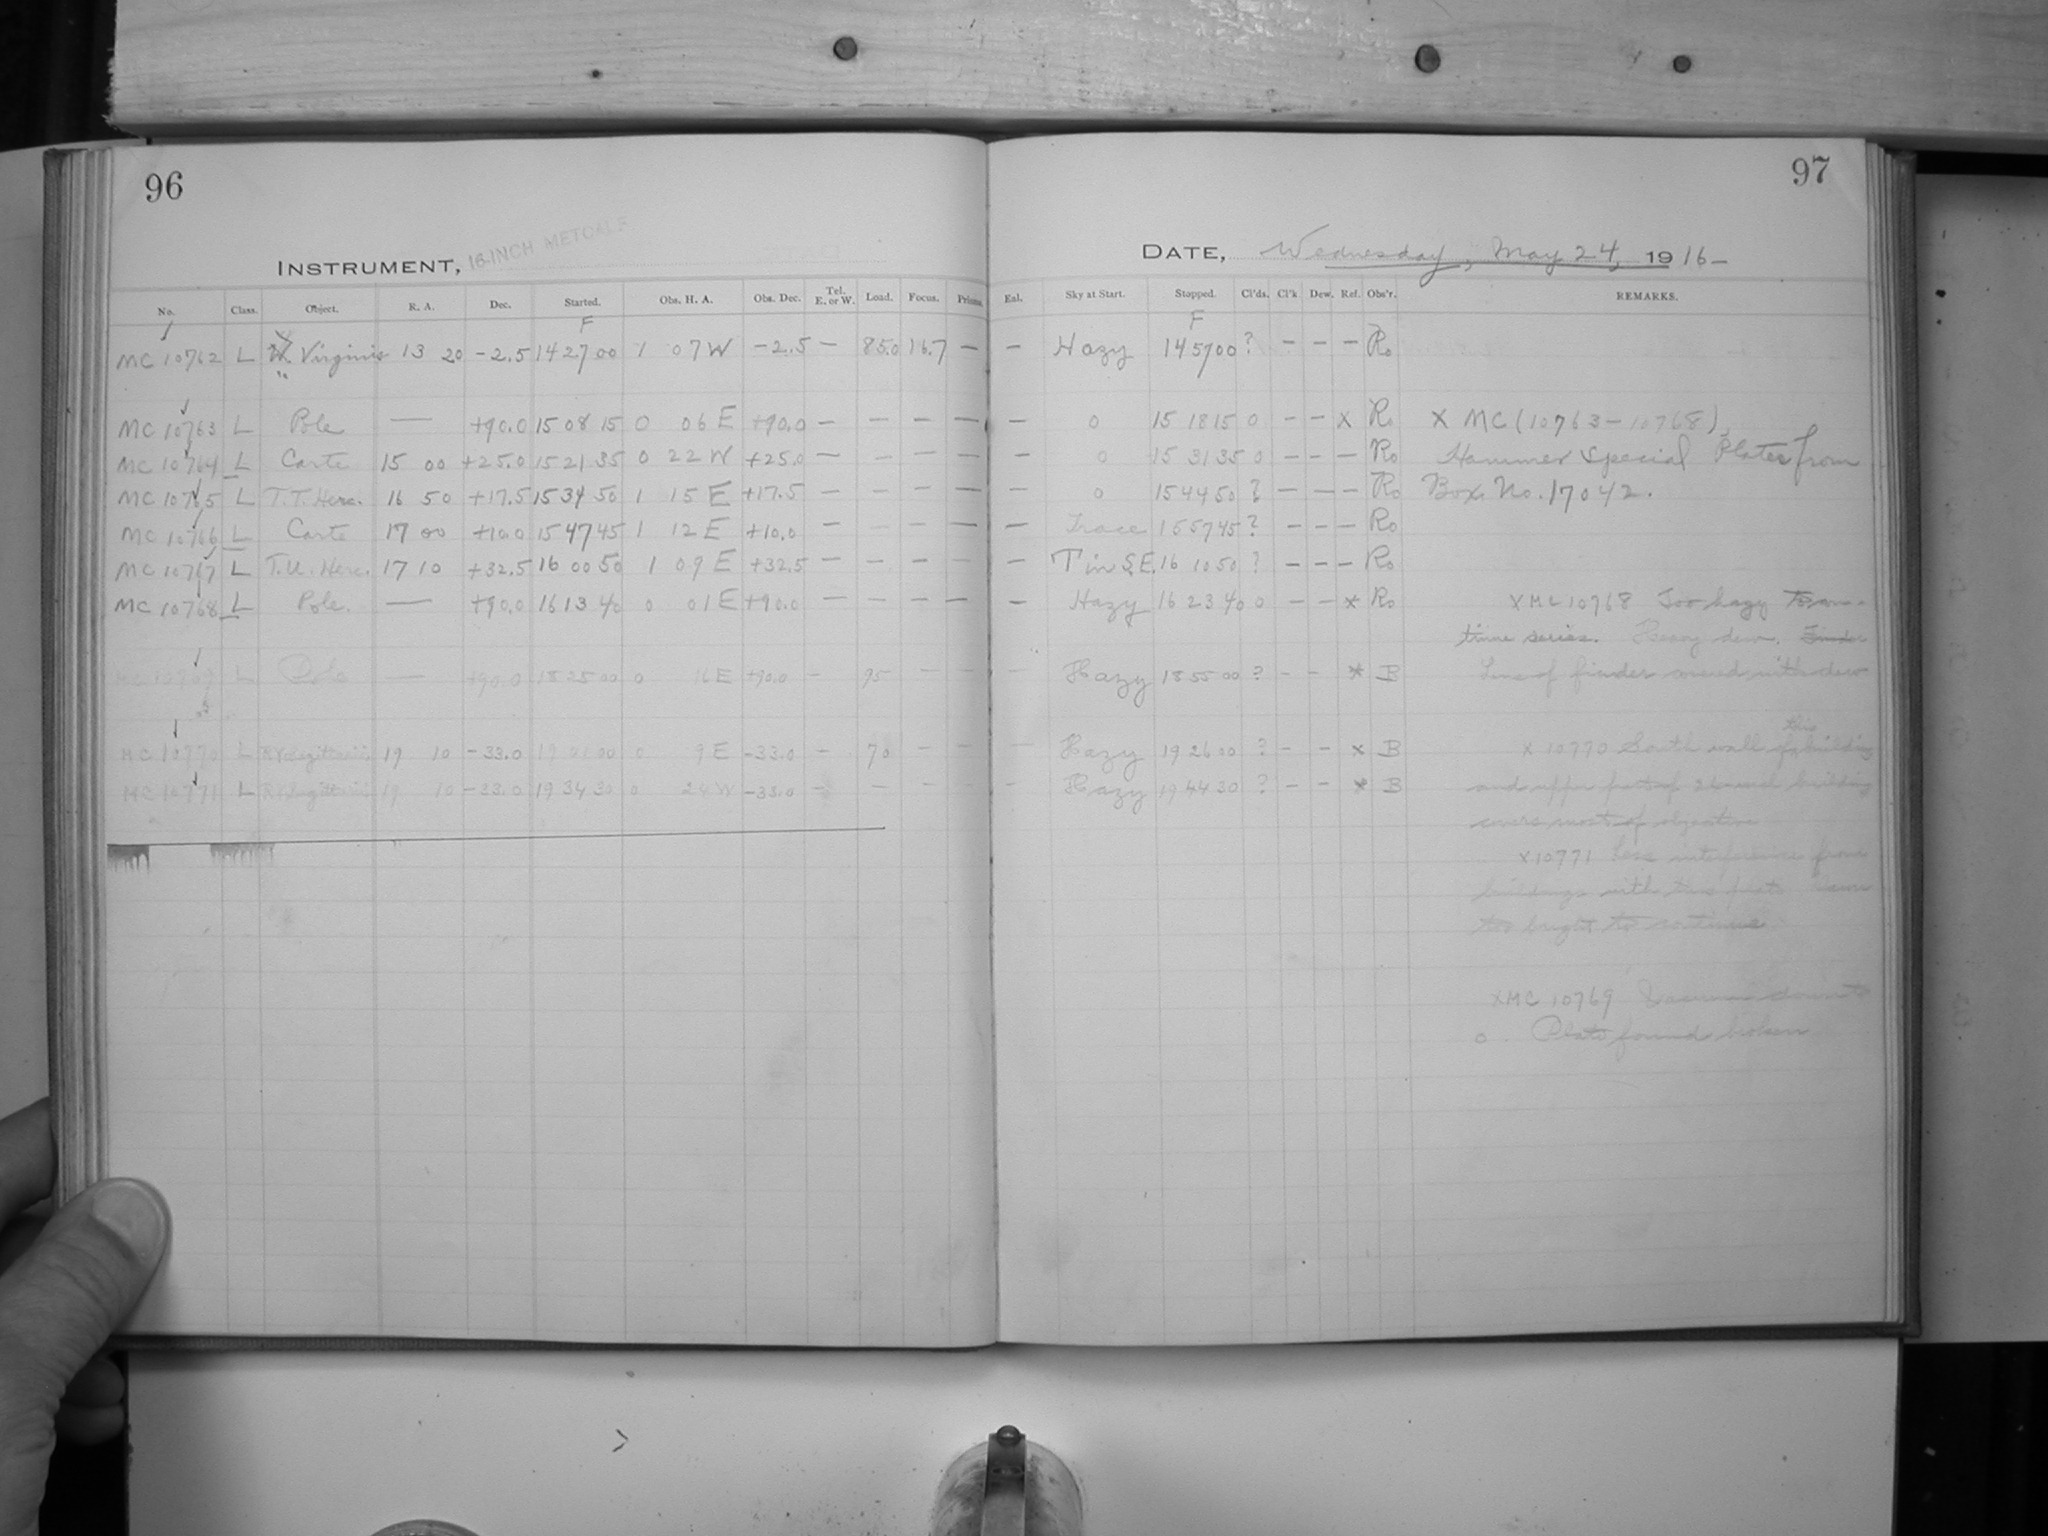 96
97
INSTRUMENT, 16-INCH METCALF
DATE, Wednesday, May 24, 1916-
No. Class. Object. R. A. Dec. Started. Obs. H. A. Obs. Dec. Tel. E. or W. Load. Focus. Prisms. Eal. Sky at Start. Stopped. Cl'ds. Cl'k Dew. Ref. Obs'r. REMARKS.
F F
MC 10762 L W. Virginis 13 20 -2.5 14 27 00 1 07 W -2.5 - 85.0 16.7 - - Hazy 14 57 00 ? - - - Ro
MC 10763 L Pole — +90.0 15 08 15 0 06 E +90.0 - - - - - 0 15 18 15 0 - - x Ro X MC (10763-10768)
MC 10764 L Carte 15 00 +25.0 15 21 35 0 22 W +25.0 - - - - - 0 15 31 35 0 - - - Ro Hammer Special Plates from
MC 10765 L T.T. Herc. 16 50 +17.5 15 34 50 1 15 E +17.5 - - - - - 0 15 44 50 ? - - - Ro Box No. 17042.
MC 10766 L Carte 17 00 +10.0 15 47 45 1 12 E +10.0 - - - - - Trace 15 57 45 ? - - - Ro
MC 10767 L T.U. Herc. 17 10 +32.5 16 00 50 1 09 E +32.5 - - - - - T in S.E. 16 10 50 ? - - - Ro
MC 10768 L Pole. — +90.0 16 13 40 0 01 E +90.0 - - - - - Hazy 16 23 40 0 - - * Ro X MC 10768 Too hazy to con-
tinue series. Heavy dew. Finder
MC 10769 L Pole — +90.0 18 25 00 0 16 E +90.0 - 95 - - - Hazy 18 55 00 ? - - * B Lens of finder covered with dew
this
MC 10770 L RV Sagittarii 19 10 -33.0 19 01 00 0 9 E -33.0 - 70 - - - Hazy 19 26 00 ? - - x B x 10770 South wall of building
MC 10771 L RV Sagittarii 19 10 -33.0 19 34 30 0 24 W -33.0 - - - - - Hazy 19 44 30 ? - - * B and upper part of building
covers most of objective
x 10771 Less interference from
buildings with this plate Dawn
too bright to continue
X MC 10769 down to
0. Plate found broken